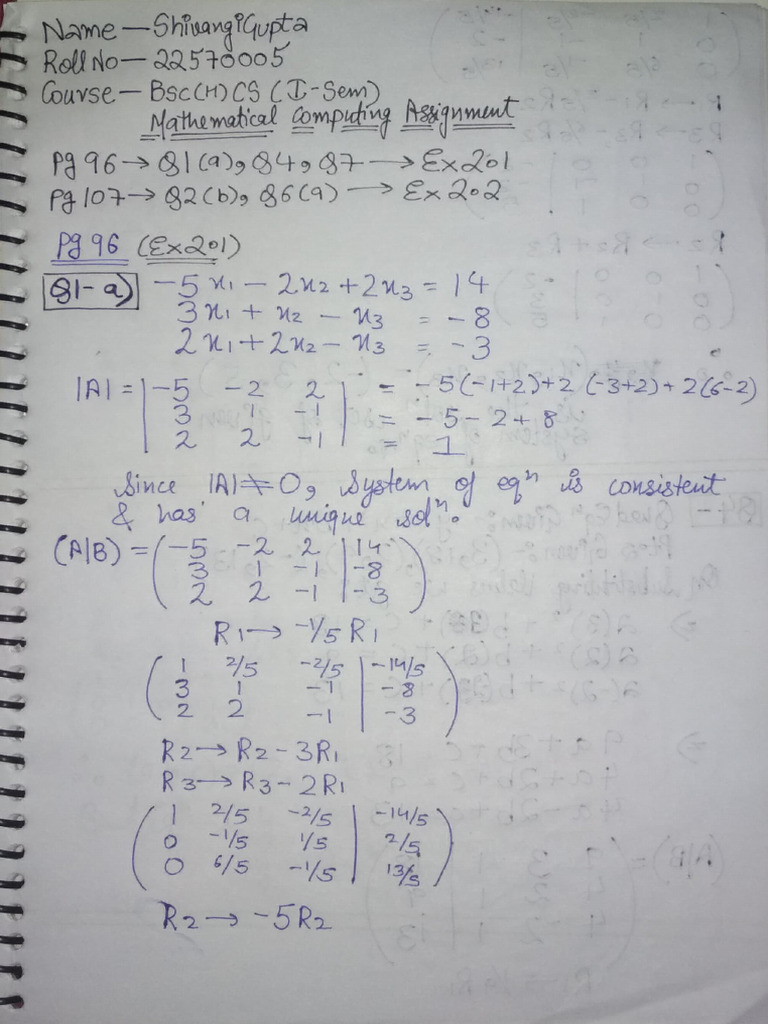 Name — Shivangi Gupta
Roll No — 22570005
Course — BSC(H) CS (I-Sem)
Mathematical Computing Assignment
Pg 96 → Q1(a), Q4, Q7 → Ex 2.1
Pg 107 → Q2(b), Q6(a) → Ex 2.2
Pg 96 (Ex 2.1)
Q1-a) -5x₁ - 2x₂ + 2x₃ = 14
3x₁ + x₂ - x₃ = -8
2x₁ + 2x₂ - x₃ = -3
|A| = | -5 -2 2 | = -5(-1+2)+2(-3+2)+2(6-2)
| 3 1 -1 | = -5-2+8
| 2 2 -1 | = 1
Since |A| ≠ 0, System of eqⁿ is consistent
& has a unique solⁿ.
(A|B) = ( -5 -2 2 | 14 )
( 3 1 -1 | -8 )
( 2 2 -1 | -3 )
R1 → -1/5 R1
( 1 2/5 -2/5 | -14/5 )
( 3 1 -1 | -8 )
( 2 2 -1 | -3 )
R2 → R2 - 3R1
R3 → R3 - 2R1
( 1 2/5 -2/5 | -14/5 )
( 0 -1/5 1/5 | 2/5 )
( 0 6/5 -1/5 | 13/5 )
R2 → -5R2